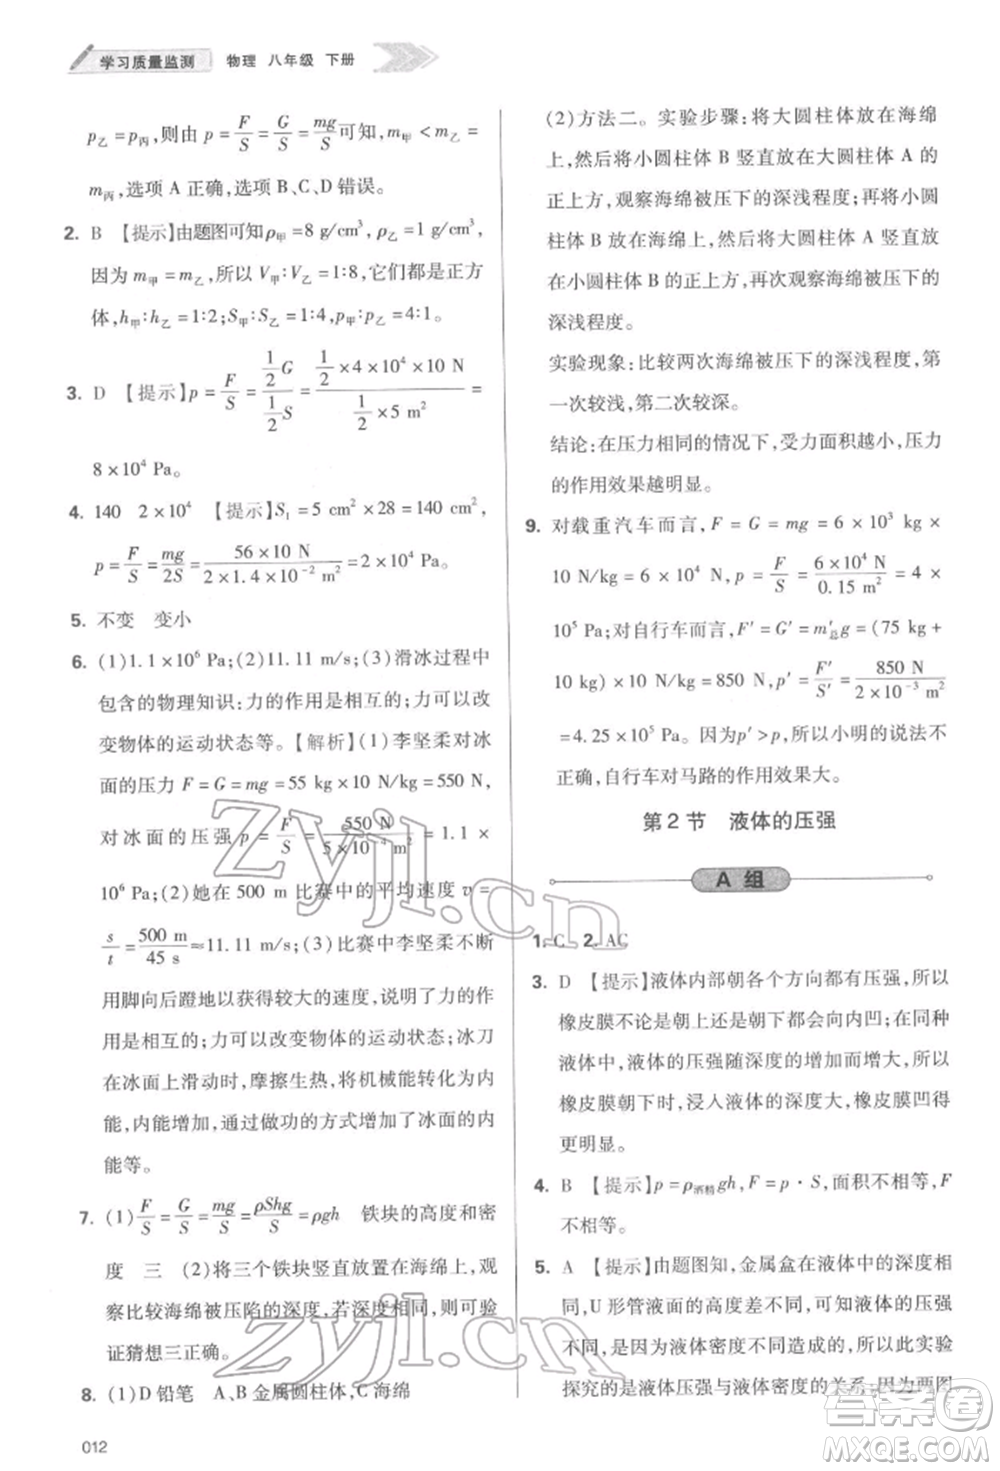 学习质量监测 物理 八年级 下册
p乙=p丙,则由p=F/S=G/S=mg/S可知,m甲<m乙=
m丙,选项 A 正确,选项 B、C、D 错误。
2. B 【提示】由题图可知ρ甲=8 g/cm³,ρ乙=1 g/cm³,
因为 m甲=m乙,所以 V甲∶V乙=1∶8,它们都是正方
体,h甲∶h乙=1∶2;S甲∶S乙=1∶4,p甲∶p乙=4∶1。
3. D 【提示】p=F/S=(1/2 G)/(1/2 S)=(1/2×4×10⁴×10 N)/(1/2×5 m²)=
8×10⁴ Pa。
4. 140 2×10⁴ 【提示】S₁=5 cm²×28=140 cm²,
p=F/S=mg/2S=(56×10 N)/(2×1.4×10⁻² m²)=2×10⁴ Pa。
5. 不变 变小
6. (1)1.1×10⁶ Pa;(2)11.11 m/s;(3)滑冰过程中
包含的物理知识:力的作用是相互的;力可以改
变物体的运动状态等。【解析】(1)李坚柔对冰
面的压力 F=G=mg=55 kg×10 N/kg=550 N,
对冰面的压强 p=F/S=550 N/(5×10⁻⁴ m²)=1.1×
10⁶ Pa;(2)她在 500 m 比赛中的平均速度 v=
s/t=500 m/45 s≈11.11 m/s;(3)比赛中李坚柔不断
用脚向后蹬地以获得较大的速度,说明了力的作
用是相互的;力可以改变物体的运动状态;冰刀
在冰面上滑动时,摩擦生热,将机械能转化为内
能,内能增加;通过做功的方式增加了冰面的内
能等。
7. (1)F/S=G/S=mg/S=ρShg/S=ρgh 铁块的高度和密
度 三 (2)将三个铁块竖直放置在海绵上,观
察比较海绵被压陷的深度,若深度相同,则可验
证猜想三正确。
8. (1)D 铅笔 A、B 金属圆柱体,C 海绵
012
(2)方法二。实验步骤:将大圆柱体放在海绵
上,然后将小圆柱体 B 竖直放在大圆柱体 A 的
正上方,观察海绵被压下的深浅程度;再将小圆
柱体 B 放在海绵上,然后将大圆柱体 A 竖直放
在小圆柱体 B 的正上方,再次观察海绵被压下的
深浅程度。
实验现象:比较两次海绵被压下的深浅程度,第
一次较浅,第二次较深。
结论:在压力相同的情况下,受力面积越小,压力
的作用效果越明显。
9. 对载重汽车而言,F=G=mg=6×10³ kg×
10 N/kg=6×10⁴ N,p=F/S=(6×10⁴ N)/(0.15 m²)=4×
10⁵ Pa;对自行车而言,F′=G′=m′总g=(75 kg+
10 kg)×10 N/kg=850 N,p′=F′/S′=850 N/(2×10⁻³ m²)
=4.25×10⁵ Pa。因为p′>p,所以小明的说法不
正确,自行车对马路的作用效果大。
第 2 节 液体的压强
A 组
1. C 2. AC
3. D 【提示】液体内部朝各个方向都有压强,所以
橡皮膜不论是朝上还是朝下都会向内凹;在同种
液体中,液体的压强随深度的增加而增大,所以
橡皮膜朝下时,浸入液体的深度大,橡皮膜凹得
更明显。
4. B 【提示】p=ρ酒精gh,F=p·S,面积不相等,F
不相等。
5. A 【提示】由题图知,金属盒在液体中的深度相
同,U 形管液面的高度差不同,可知液体的压强
不同,是因为液体密度不同造成的,所以此实验
探究的是液体压强与液体密度的关系;两图
zyjl.cn
zyjl.cn
答案圈
MXQE.COM